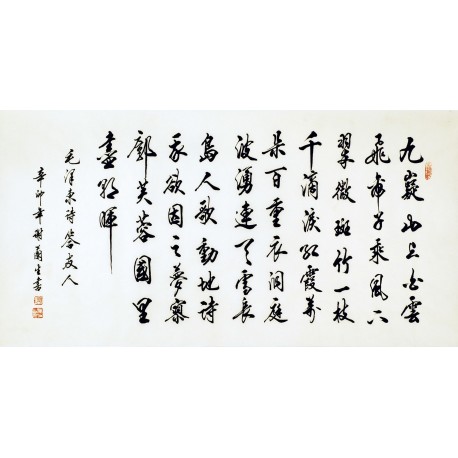 九嶷山上白雲
飛帝子乘風下
翠微斑竹一枝
千滴淚紅霞萬
朵百重衣洞庭
波湧連天雪長
島人歌動地詩
我欲因之夢寥
廓芙蓉國里
盡朝暉
毛澤东詩答友人
辛卯年生書